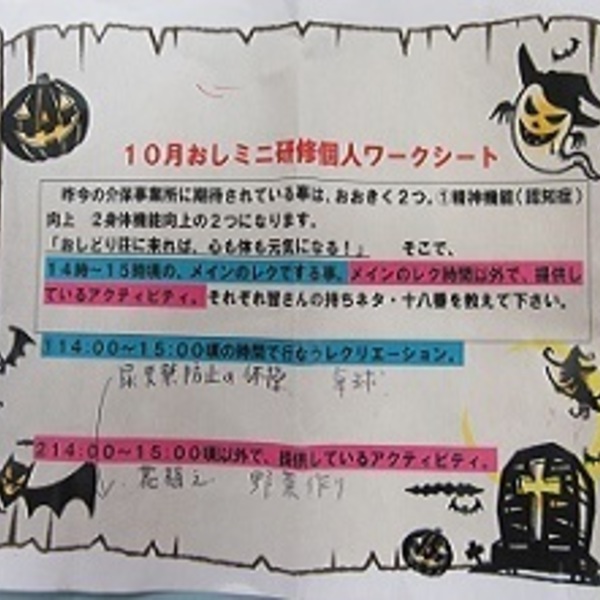 10月おしミニ研修個人ワークシート
昨今の介保事業所に期待されている事は、おおきく2つ。①精神機能(認知症)
向上 2身体機能向上の2つになります。
「おしどり荘に来れば、心も体も元気になる!」 そこで、
14時~15時頃の、メインのレクでする事。メインのレク時間以外で、提供し
ているアクティビティ。それぞれ皆さんの持ちネタ・十八番を教えて下さい。
114:00~15:00頃の時間で行なうレクリエーション。
尿失禁防止の体操 卓球
214:00~15:00頃以外で、提供しているアクティビティ。
花植え 野菜作り